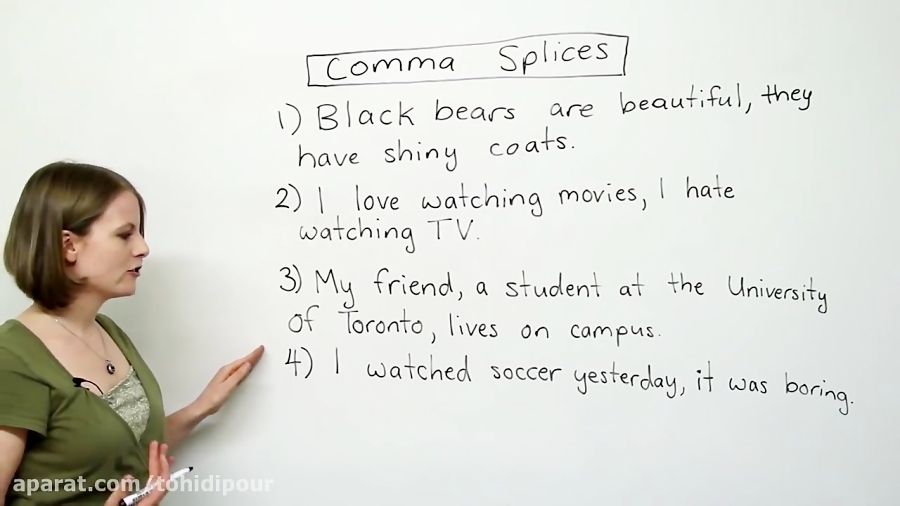 Comma Splices
1) Black bears are beautiful, they
have shiny coats.
2) I love watching movies, I hate
watching TV.
3) My friend, a student at the University
of Toronto, lives on campus.
4) I watched soccer yesterday, it was boring.
aparat.com/tohidipour